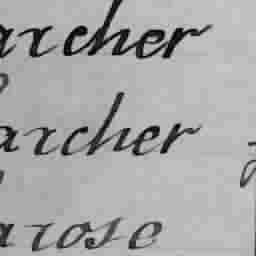 archer
archer
arose